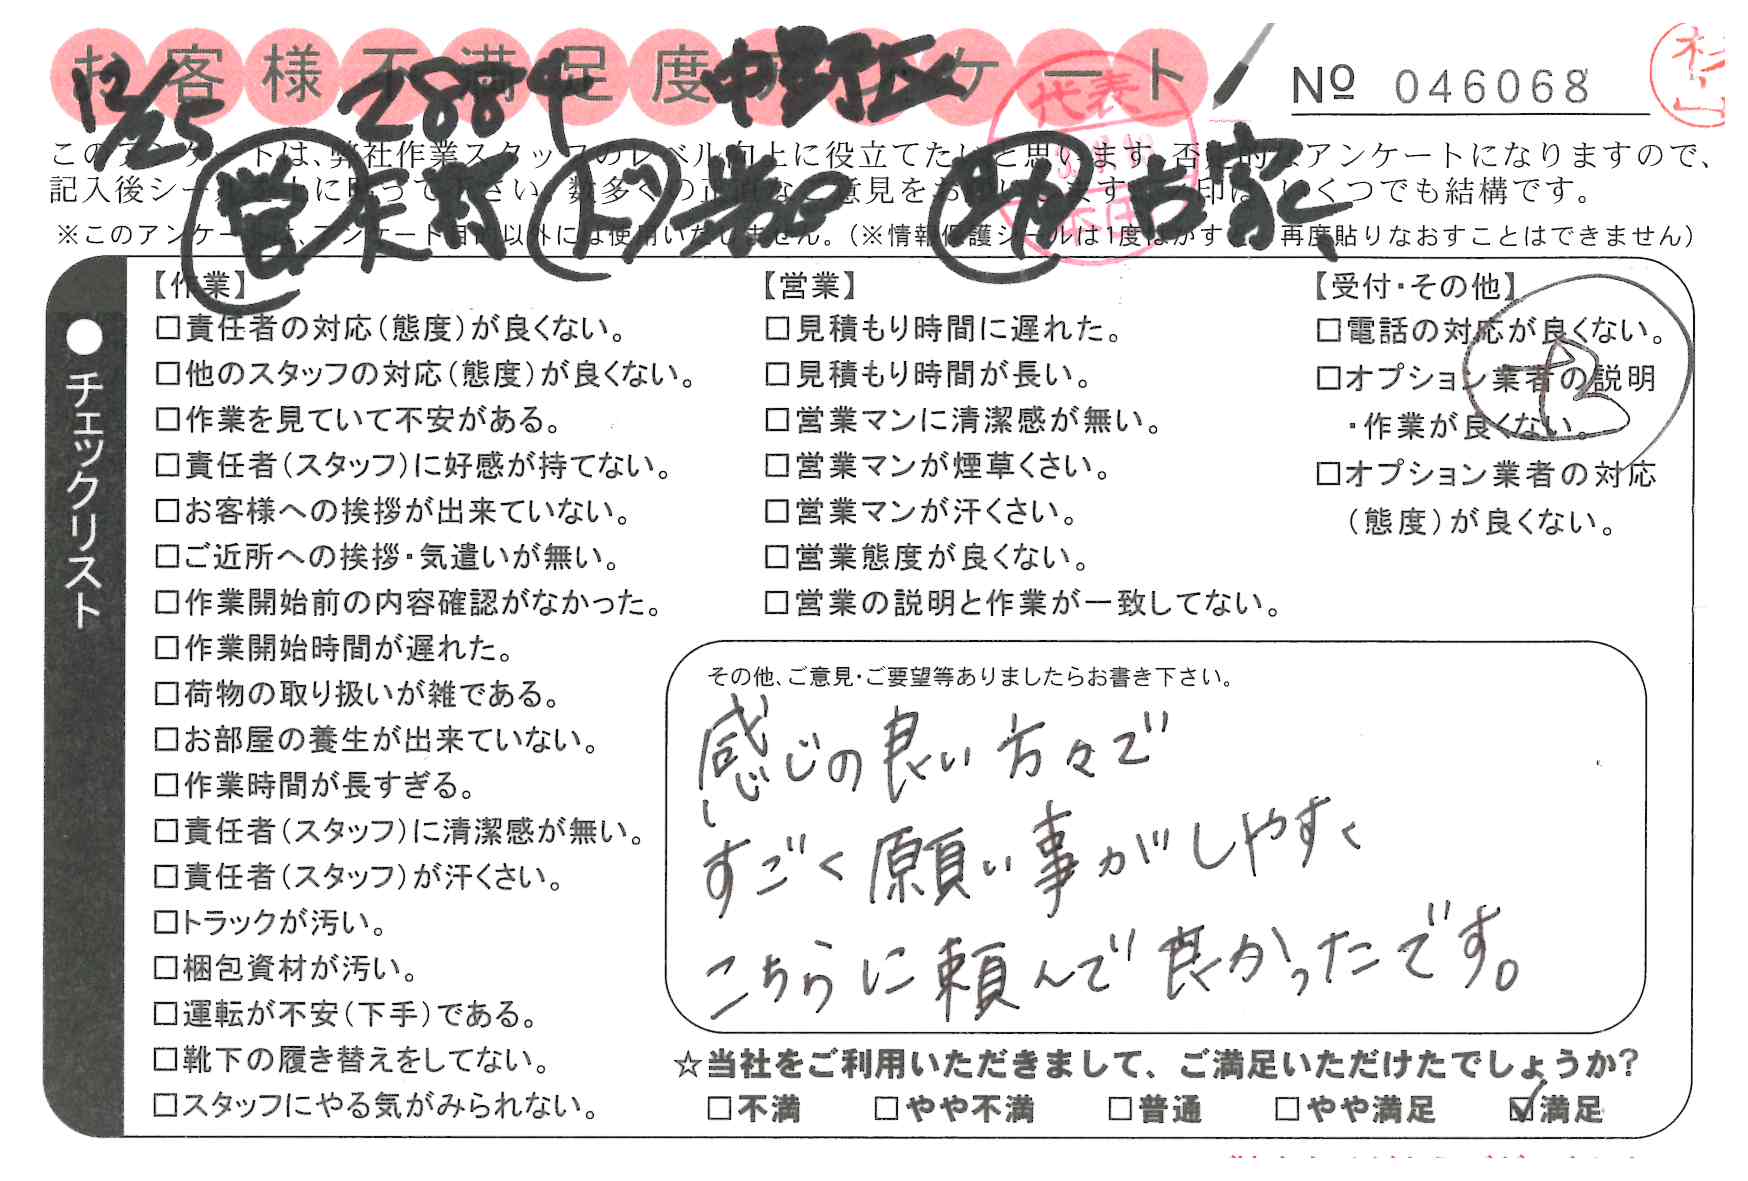 お客様不満足度アンケート
12/25 2884 中野区
№ 046068
代表
このアンケートは、弊社作業スタッフのレベル向上に役立てたいと思います。否定的なアンケートになりますので、
記入後シールを上に貼って下さい。数多くの正直なご意見をお 印は、いくつでも結構です。
営 ド 助 古家
※このアンケートは、アンケート目的以外には使用いたしません。(※情報保護シールは1度はがすと、再度貼りなおすことはできません)
●チェックリスト
【作業】
□責任者の対応(態度)が良くない。
□他のスタッフの対応(態度)が良くない。
□作業を見ていて不安がある。
□責任者(スタッフ)に好感が持てない。
□お客様への挨拶が出来ていない。
□ご近所への挨拶・気遣いが無い。
□作業開始前の内容確認がなかった。
□作業開始時間が遅れた。
□荷物の取り扱いが雑である。
□お部屋の養生が出来ていない。
□作業時間が長すぎる。
□責任者(スタッフ)に清潔感が無い。
□責任者(スタッフ)が汗くさい。
□トラックが汚い。
□梱包資材が汚い。
□運転が不安(下手)である。
□靴下の履き替えをしてない。
□スタッフにやる気がみられない。
【営業】
□見積もり時間に遅れた。
□見積もり時間が長い。
□営業マンに清潔感が無い。
□営業マンが煙草くさい。
□営業マンが汗くさい。
□営業態度が良くない。
□営業の説明と作業が一致してない。
【受付・その他】
□電話の対応が良くない。
□オプション業者の説明
・作業が良くない。
□オプション業者の対応
(態度)が良くない。
その他、ご意見・ご要望等ありましたらお書き下さい。
感じの良い方々で
すごく願い事がしやすく
こちらに頼んで良かったです。
☆当社をご利用いただきまして、ご満足いただけたでしょうか?
□不満 □やや不満 □普通 □やや満足 ☑満足